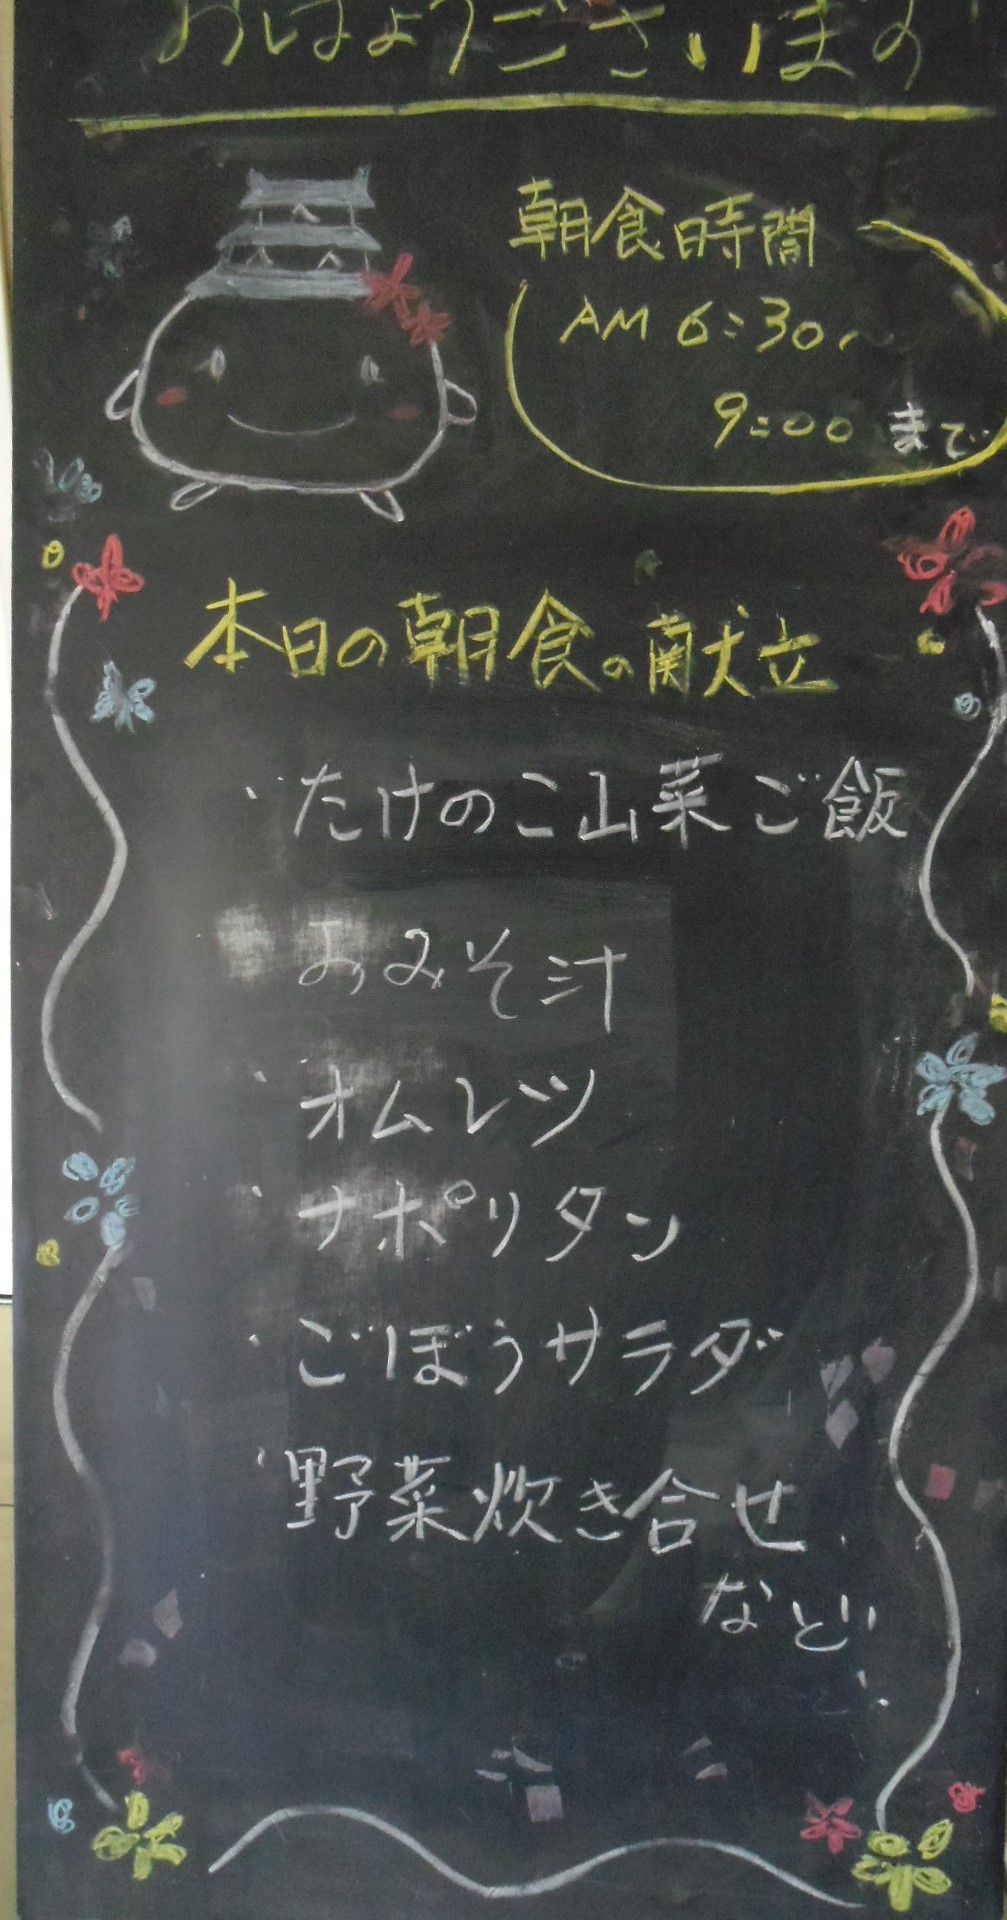 おはようございます
朝食時間
AM 6:30〜
9:00 まで
本日の朝食の献立
・たけのこ山菜ご飯
おみそ汁
・オムレツ
・ナポリタン
・ごぼうサラダ
・野菜炊き合せ
など